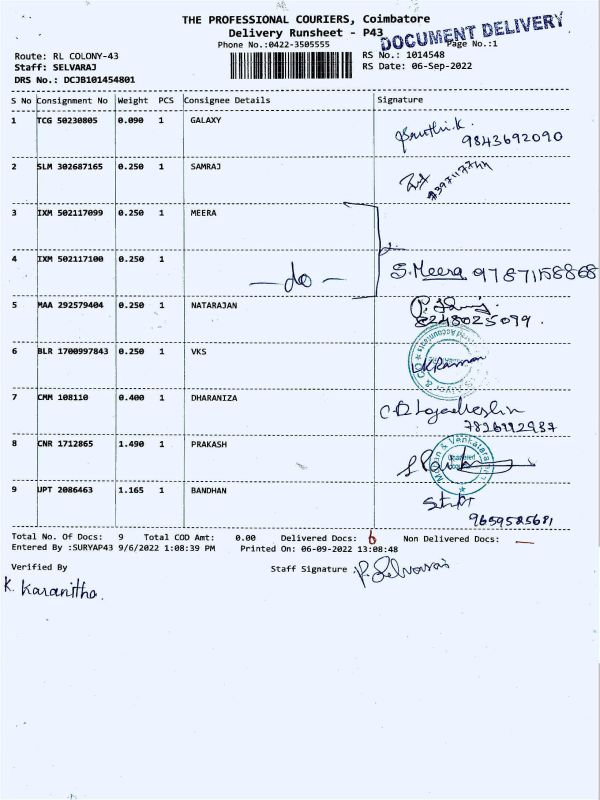 THE PROFESSIONAL COURIERS, Coimbatore
Delivery Runsheet - P43
DOCUMENT DELIVERY
Phone No.:0422-3505555
Page No.:1
Route: RL COLONY-43
RS No.: 1014548
Staff: SELVARAJ
RS Date: 06-Sep-2022
DRS No.: DCJB101454801
S No Consignment No Weight PCS Consignee Details Signature
1 TCG 50230805 0.090 1 GALAXY
9843692090
2 SLM 302687165 0.250 1 SAMRAJ
3 IXM 502117099 0.250 1 MEERA
4 IXM 502117100 0.250 1
— do — S. Meera 9787158868
5 MAA 292579404 0.250 1 NATARAJAN
8248025099.
6 BLR 1700997843 0.250 1 VKS
7 CMM 108110 0.400 1 DHARANIZA
8 CNR 1712865 1.490 1 PRAKASH
9 UPT 2086463 1.165 1 BANDHAN
9659585681
Total No. Of Docs: 9 Total COD Amt: 0.00 Delivered Docs: 6 Non Delivered Docs: —
Entered By :SURYAP43 9/6/2022 1:08:39 PM Printed On: 06-09-2022 13:08:48
Verified By Staff Signature : P. Selvaraj
K. Karanitha.